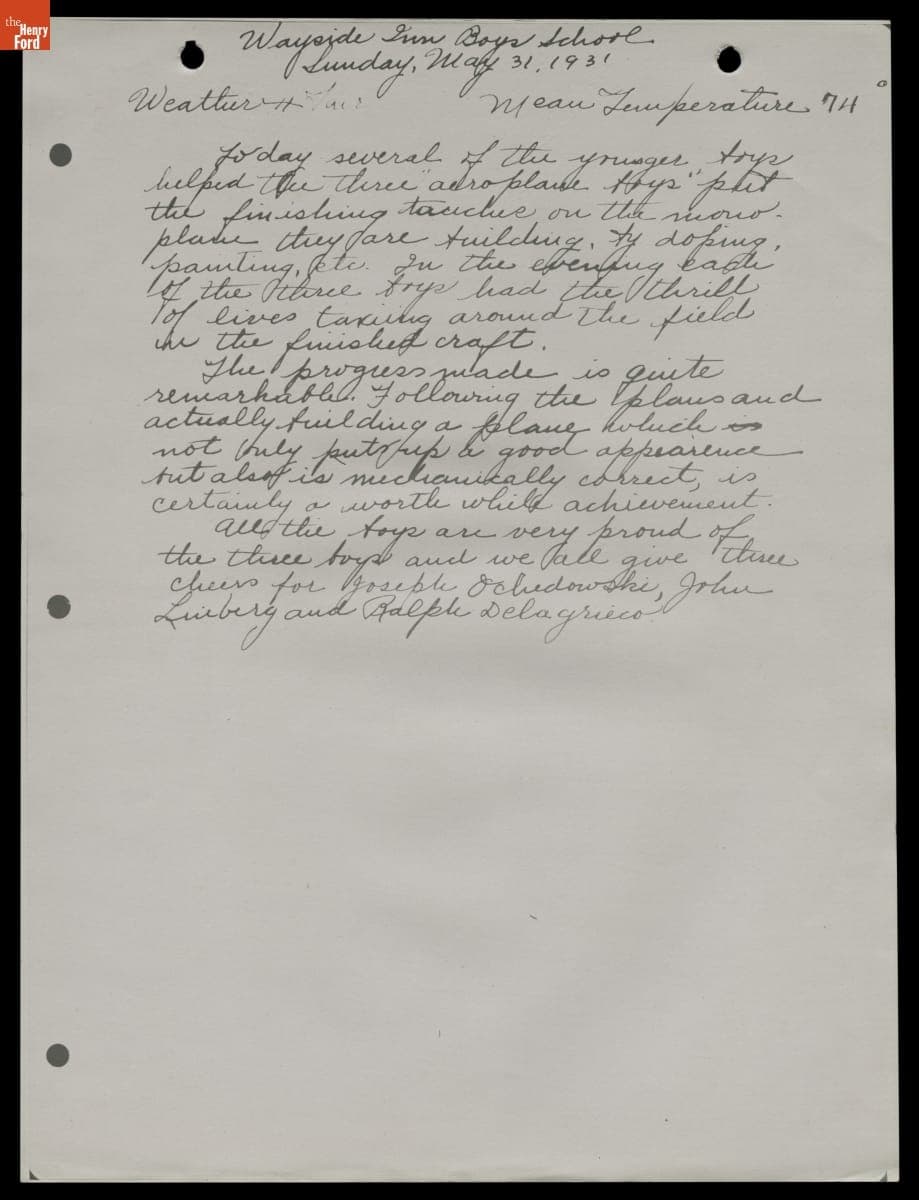 the
Henry
Ford
Wayside Inn Boys School
Sunday, May 31, 1931
Weather Mean Temperature 74°
Today several of the younger boys
helped the three "aeroplane boys" put
the finishing touches on the mono-
plane they are building, by doping,
painting, etc. In the evening each
of the three boys had the thrill
of lives taxiing around the field
in the finished craft.
The progress made is quite
remarkable. Following the plans and
actually building a plane which is
not only puts up a good appearence
but also is mechanically correct, is
certainly a worth while achievement.
All the boys are very proud of
the three boys and we all give three
cheers for Joseph Ochedowski, John
Linberg and Ralph Delagrieco